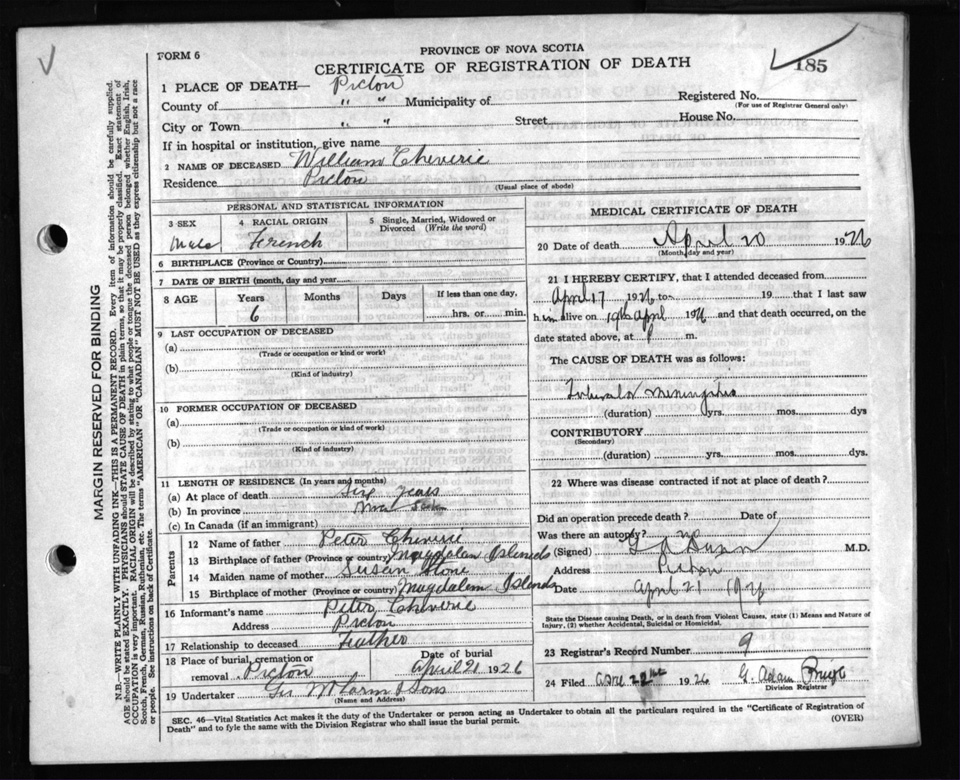 FORM 6
PROVINCE OF NOVA SCOTIA
CERTIFICATE OF REGISTRATION OF DEATH
185
1 PLACE OF DEATH— Pictou
County of " " Municipality of
Registered No.
(For use of Registrar General only)
City or Town " " Street House No.
If in hospital or institution, give name
2 NAME OF DECEASED William Cheverie
Residence Pictou
(Usual place of abode)
PERSONAL AND STATISTICAL INFORMATION
3 SEX Male
4 RACIAL ORIGIN French
5 Single, Married, Widowed or Divorced (Write the word)
6 BIRTHPLACE (Province or Country)
7 DATE OF BIRTH (month, day and year)
8 AGE Years Months Days If less than one day,
6 hrs. or min.
9 LAST OCCUPATION OF DECEASED
(a)
(Trade or occupation or kind or work)
(b)
(Kind of industry)
10 FORMER OCCUPATION OF DECEASED
(a)
(Trade or occupation or kind of work)
(b)
(Kind of industry)
11 LENGTH OF RESIDENCE (In years and months)
(a) At place of death Six years
(b) In province
(c) In Canada (if an immigrant)
Parents
12 Name of father Peter Cheverie
13 Birthplace of father (Province or country) Magdalan Islands
14 Maiden name of mother Susan Stone
15 Birthplace of mother (Province or country) Magdalem Islands
16 Informant's name Peter Cheverie
Address Pictou
17 Relationship to deceased Feather
18 Place of burial, cremation or removal Pictou
Date of burial April 21 1926
19 Undertaker & Sons
(Name and Address)
MEDICAL CERTIFICATE OF DEATH
20 Date of death April 20 1926
(Month, day and year)
21 I HEREBY CERTIFY, that I attended deceased from
April 17 1926 to 19 that I last saw
him alive on 19th April 1926 and that death occurred, on the
date stated above, at m.
The CAUSE OF DEATH was as follows:
Tubercular meningitis
(duration) yrs. mos. dys
CONTRIBUTORY
(Secondary)
(duration) yrs. mos. dys.
22 Where was disease contracted if not at place of death?
Did an operation precede death? Date of
Was there an autopsy? no
(Signed) M.D.
Address Pictou
Date April 21 1926
State the Disease causing Death, or in death from Violent Causes, state (1) Means and Nature of Injury, (2) whether Accidental, Suicidal or Homicidal.
23 Registrar's Record Number 9
24 Filed April 22nd 1926 G. Adam
Division Registrar
SEC. 46—Vital Statistics Act makes it the duty of the Undertaker or person acting as Undertaker to obtain all the particulars required in the "Certificate of Registration of
Death" and to fyle the same with the Division Registrar who shall issue the burial permit.
(OVER)
MARGIN RESERVED FOR BINDING
N.B.—WRITE PLAINLY WITH UNFADING INK—THIS IS A PERMANENT RECORD. Every item of information should be carefully supplied.
AGE should be stated EXACTLY. PHYSICIANS should STATE CAUSE OF DEATH in plain terms, so that it may be properly classified. Exact statement of
OCCUPATION is very important. RACIAL ORIGIN will be described by stating to what people or tongue the deceased person belonged, whether English, Irish,
Scotch, French, German, Russian, Ruthenian, etc. The terms "AMERICAN" OR "CANADIAN" MUST NOT BE USED as they express citizenship but not a race
or people. See instructions on back of Certificate.